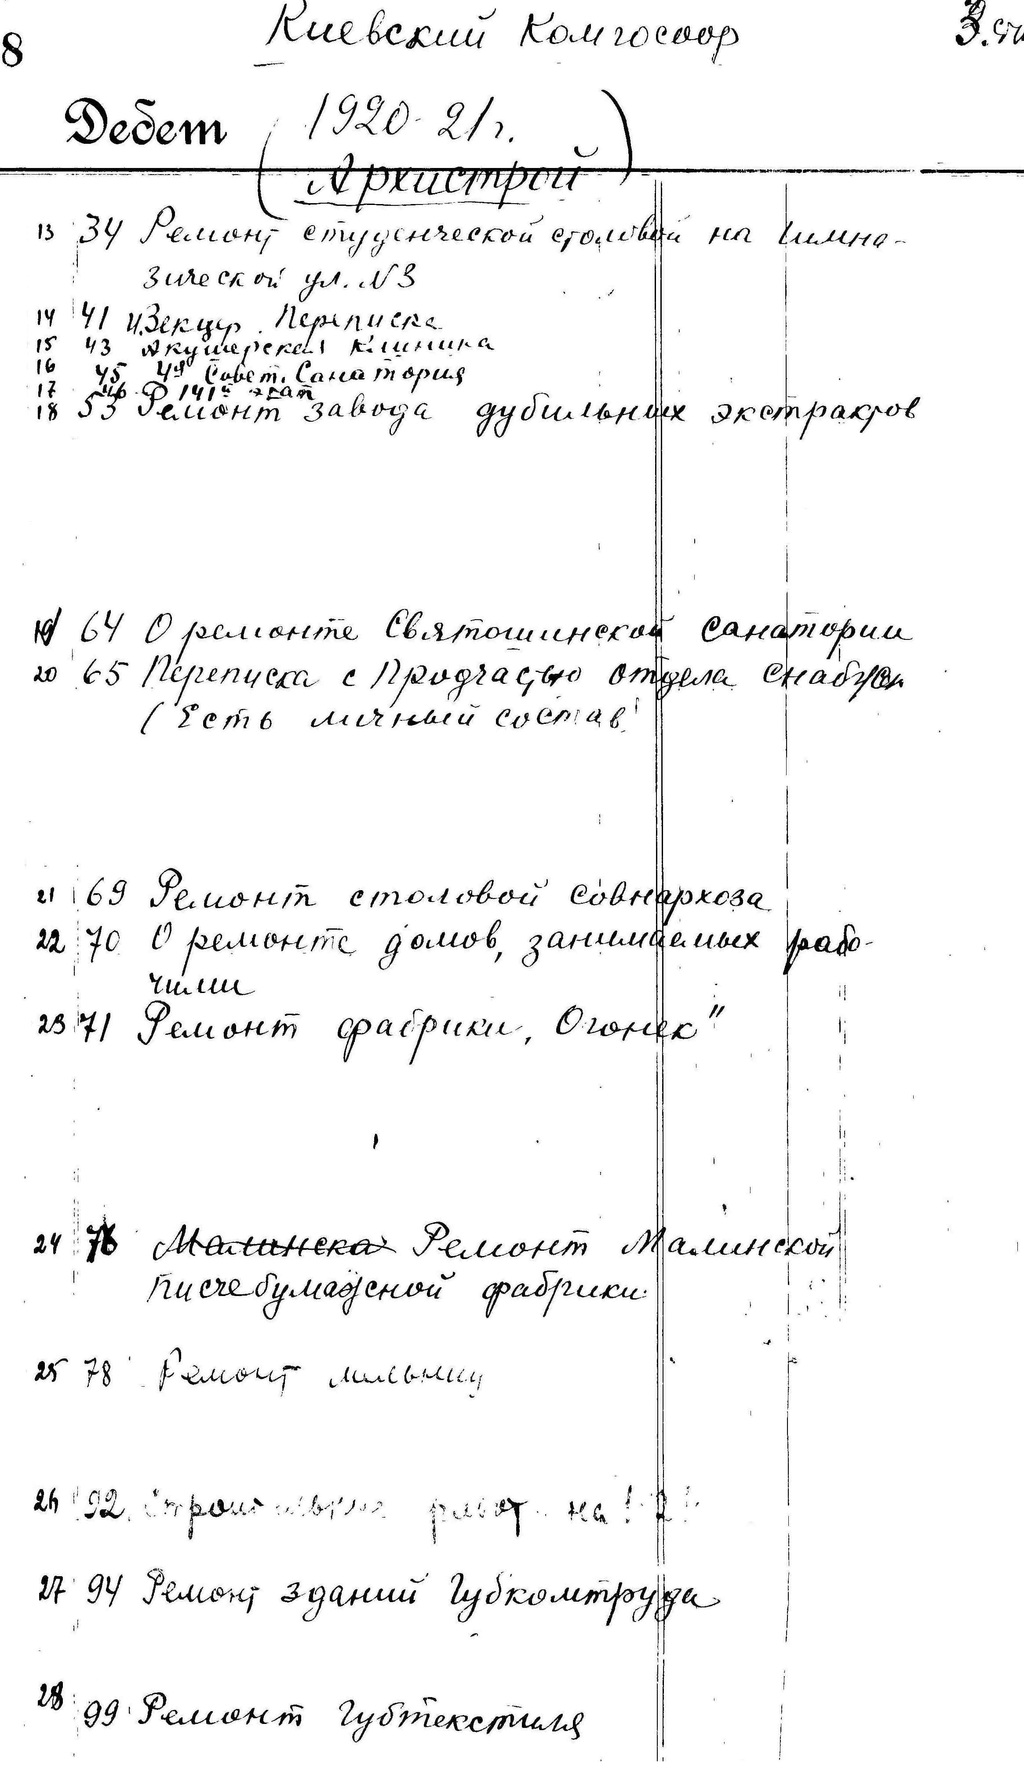 8 Киевский Комгосоор 3.
Дебет (1920-21г.
Архистрой)
13 34 Ремонт студенческой столовой на Гимна-
зической ул. N 3
14 41 Переписка
15 43 Акушерская клиника
16 45 49 Совет. Санатория
17 46 141й этап
18 53 Ремонт завода дубильных экстрактов
19 64 О ремонте Святошинской санатории
20 65 Переписка с Продчастью отдела снабжен
(Есть личный состав)
21 69 Ремонт столовой совнархоза
22 70 О ремонте домов, занимаемых рабо-
чими
23 71 Ремонт фабрики „Огонек"
24 76 Малинска Ремонт Малинской
писчебумажной фабрики
25 78 Ремонт мельниц
26 92 работ на
27 94 Ремонт зданий Губкомтруда
28 99 Ремонт Губтекстиля